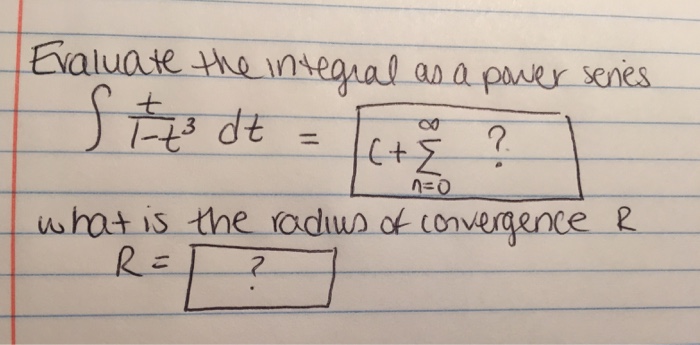 Evaluate the integral as a power series
∫ t/(1-t³) dt = C + ∑_{n=0}^{∞} ?
what is the radius of convergence R
R = ?